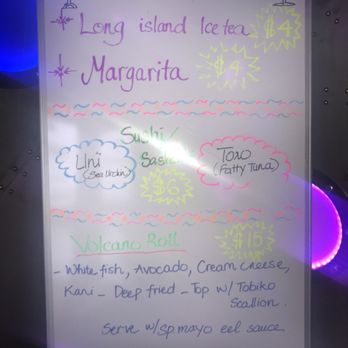 Long island Ice tea $4
Margarita $4
Sushi/
Uni
(Sea Urchin)
Toro
(Fatty Tuna)
$6
Volcano Roll $15
- White fish, Avocado, Cream Cheese,
Kani - Deep fried - Top w/ Tobiko
Scallion.
Serve w/ sp.mayo eel sauce